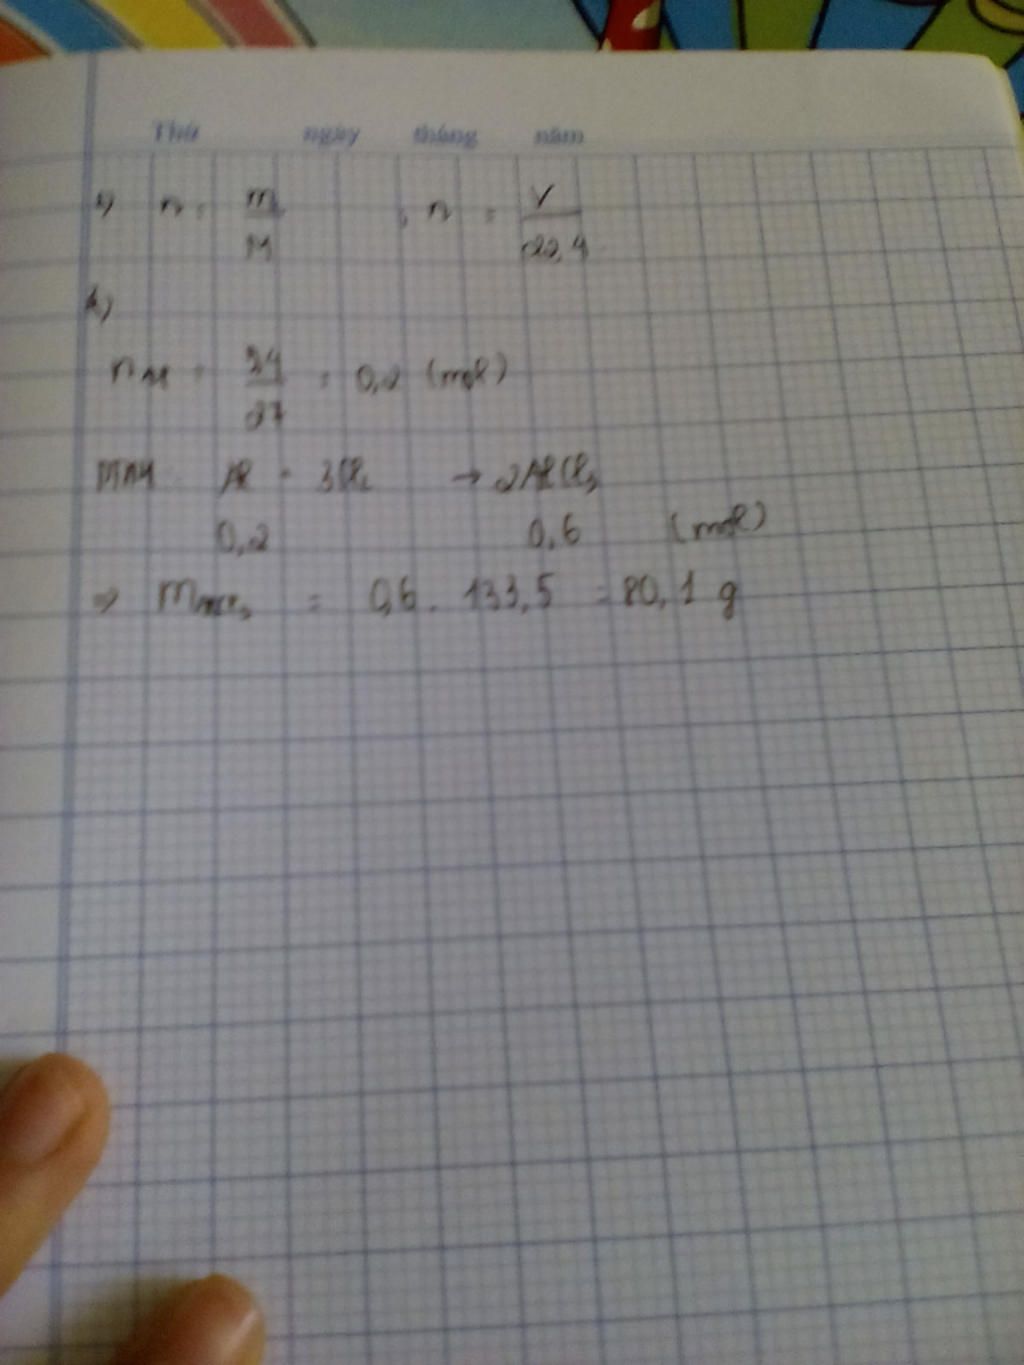 Thứ ngày tháng năm
1) n = m/M , n = V/22,4
2)
n Al = 24/27 = 0,2 (mol)
PTHH Al + 3Cl₂ → 2AlCl₃
0,2 0,6 (mol)
⇒ m AlCl₃ = 0,6 . 133,5 = 80,1 g